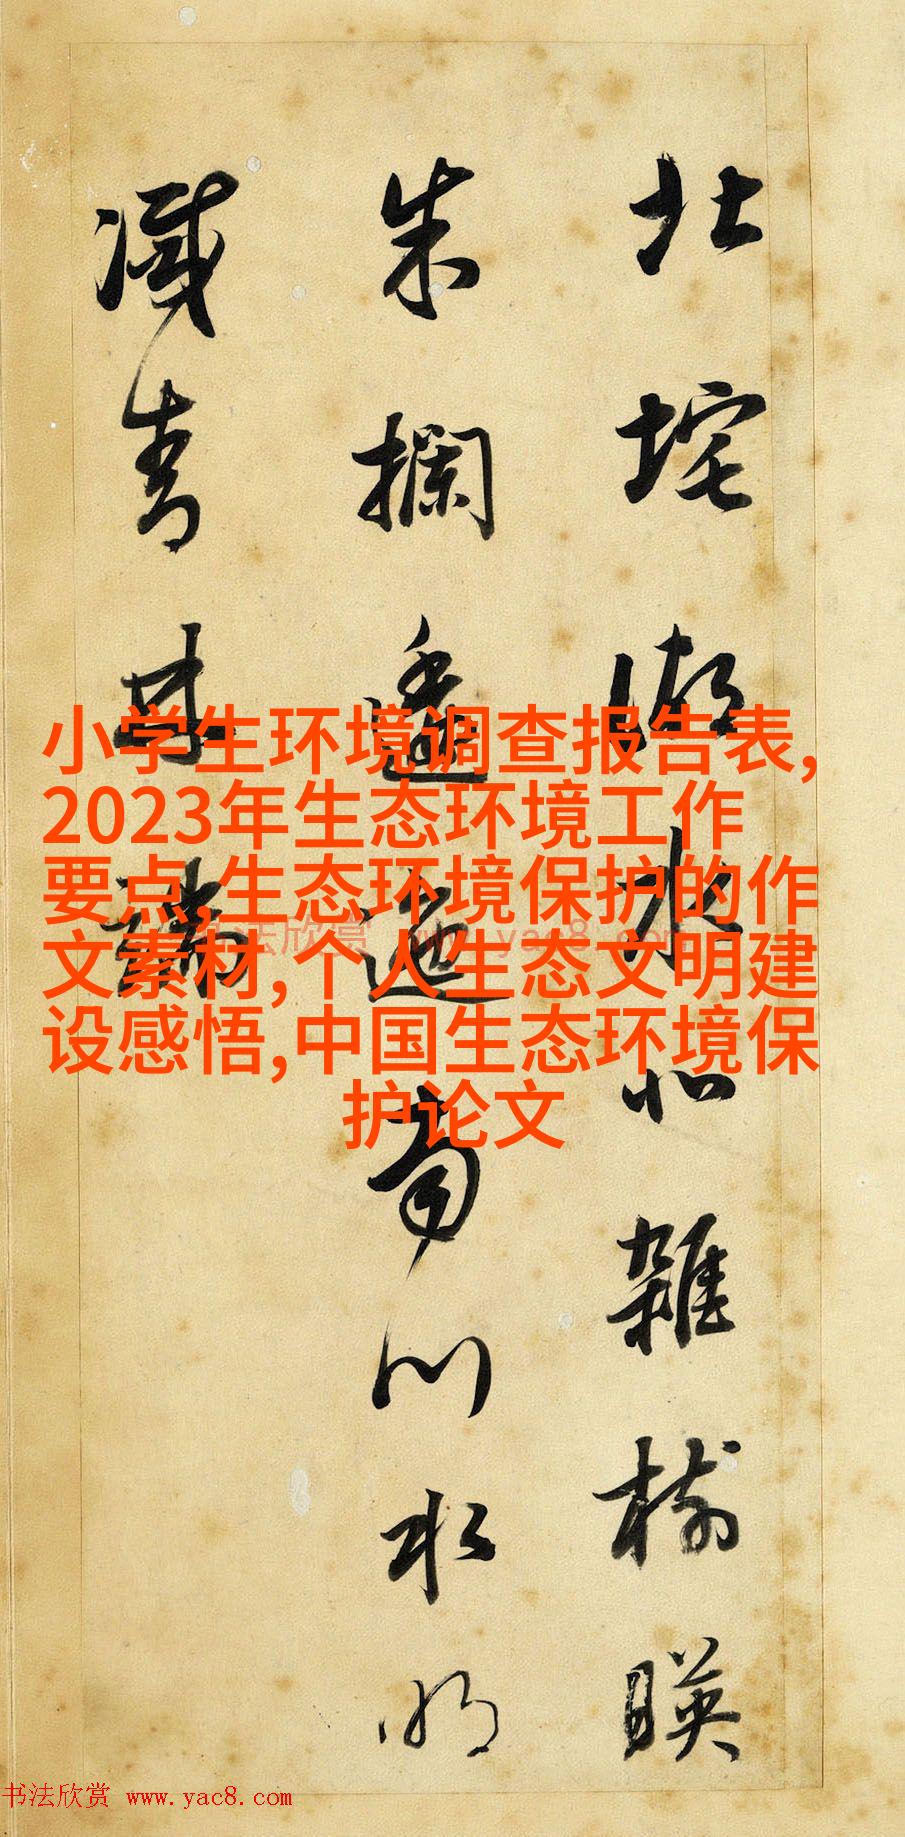 北垞湖水北雜樹暎
朱攔逶迤南川水明
滅青林端
小学生环境调查报告表,
2023年生态环境工作
要点,生态环境保护的作
文素材,个人生态文明建
设感悟,中国生态环境保
护论文
书法欣赏 www.yac8.com
书法欣赏 www.yac8.com